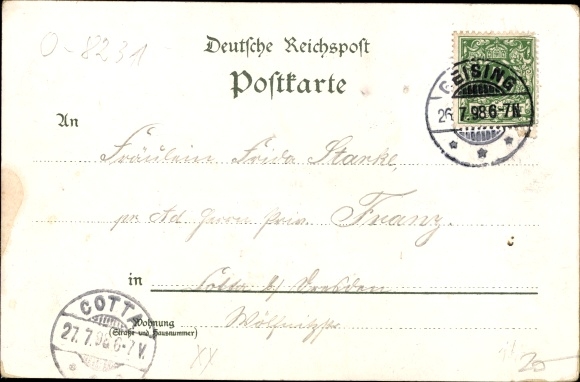 O-8231
Deutsche Reichspost
Postkarte
GEISING
26.7.98.6-7N
An
Fräulein Frida Starke,
pr. Ad. Herrn Franz.
in Cotta b/ Dresden
COTTA
27.7.98.6-7V.
Wohnung
(Straße und Hausnummer)
XX
25